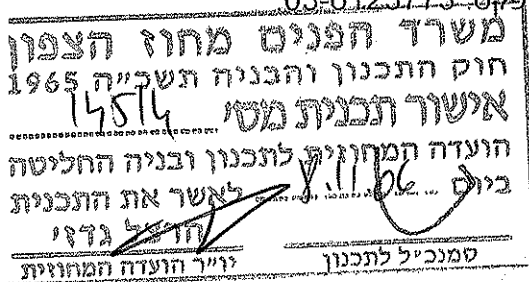 משרד הפנים מחוז הצפון
חוק התכנון והבניה תשכ"ה 1965
אישור תכנית מס' 14514
הועדה המחוזית לתכנון ובניה החליטה
ביום 8.11.06 לאשר את התכנית
סמנכ"ל לתכנון
יו"ר הועדה המחוזית